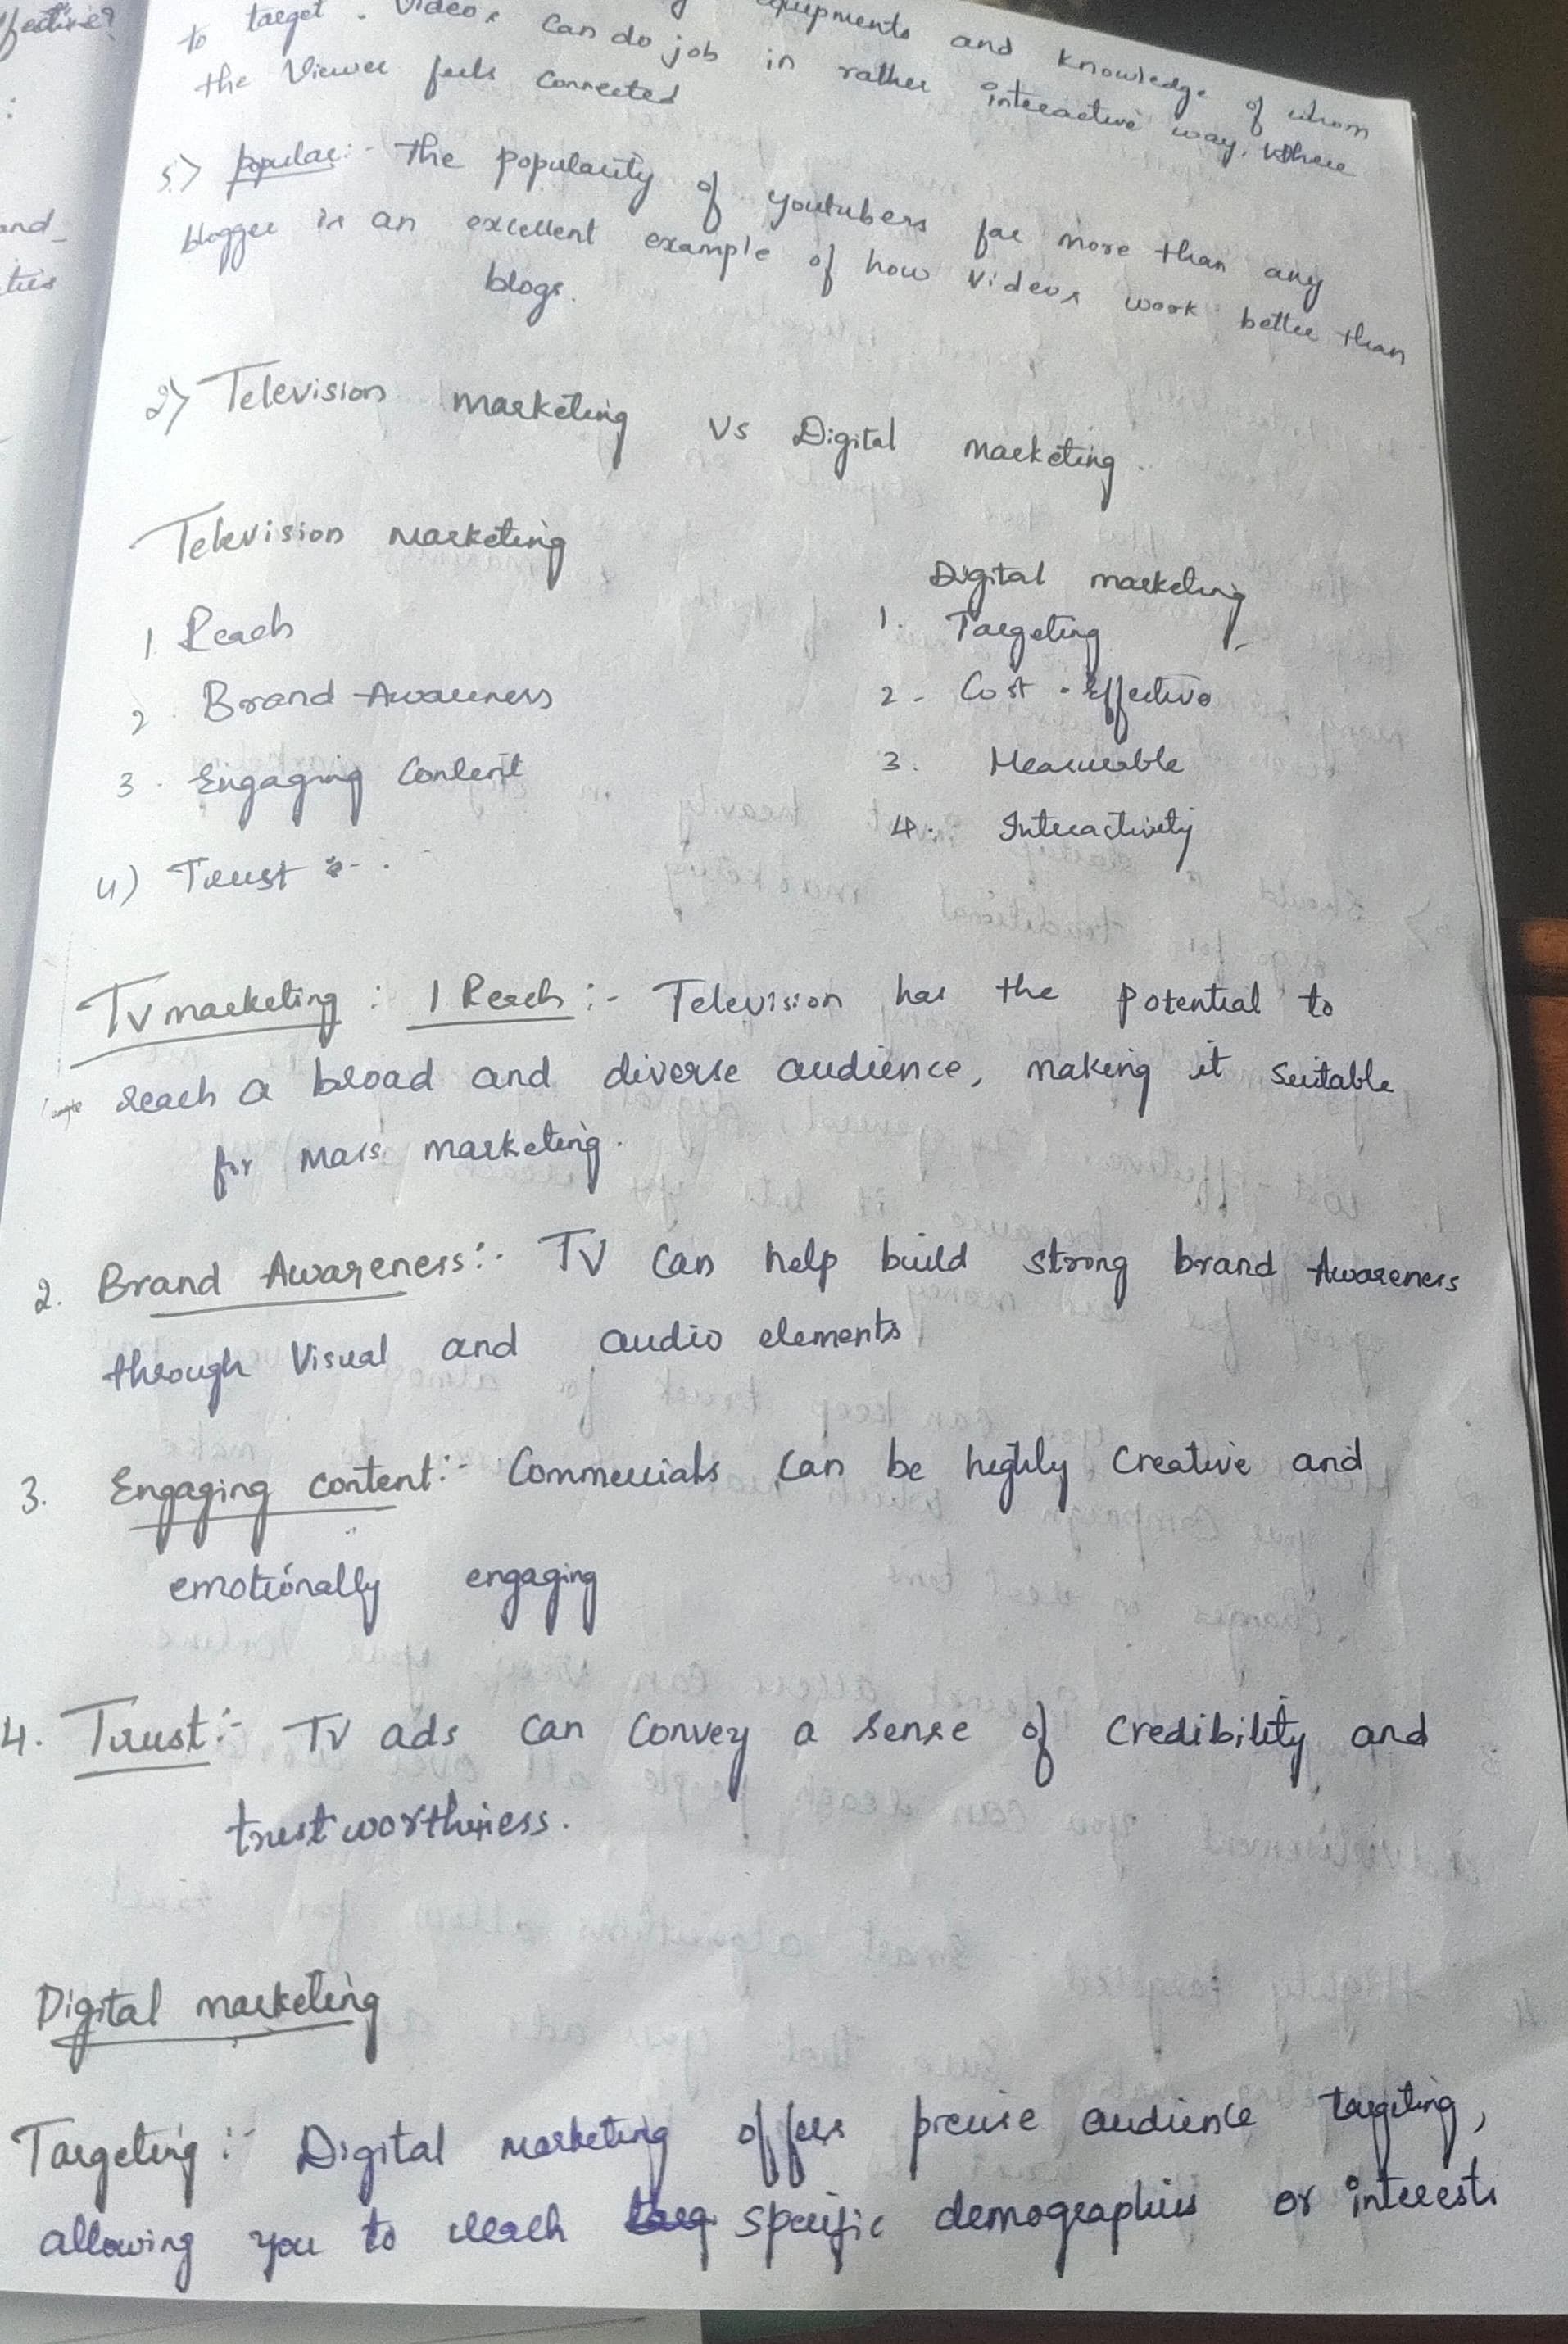 fective?
and
ties
equipments and knowledge of whom
to target. Videos can do job in rather interactive way, where
the Viewer feels connected
5.> popular:- the popularity of youtubers far more than any
blogger is an excellent example of how videos work better than
blogs.
2) Television marketing vs Digital marketing.
Television marketing
Digital marketing
1 Reach
1. Targeting
2. Brand Awareness
2- Cost-effective
3. Engaging Content
3. Measurable
4) Trust :-
4. Interactivity
TV marketing : 1 Reach :- Television has the potential to
reach a broad and diverse audience, making it suitable
for mass marketing.
2. Brand Awareness:- TV can help build strong brand Awareness
through Visual and audio elements
3. Engaging content:- Commercials can be highly creative and
emotionally engaging
4. Trust:- TV ads can convey a sense of credibility and
trustworthiness.
Digital marketing
Targeting:- Digital marketing offers precise audience targeting,
allowing you to reach specific demographics or interests